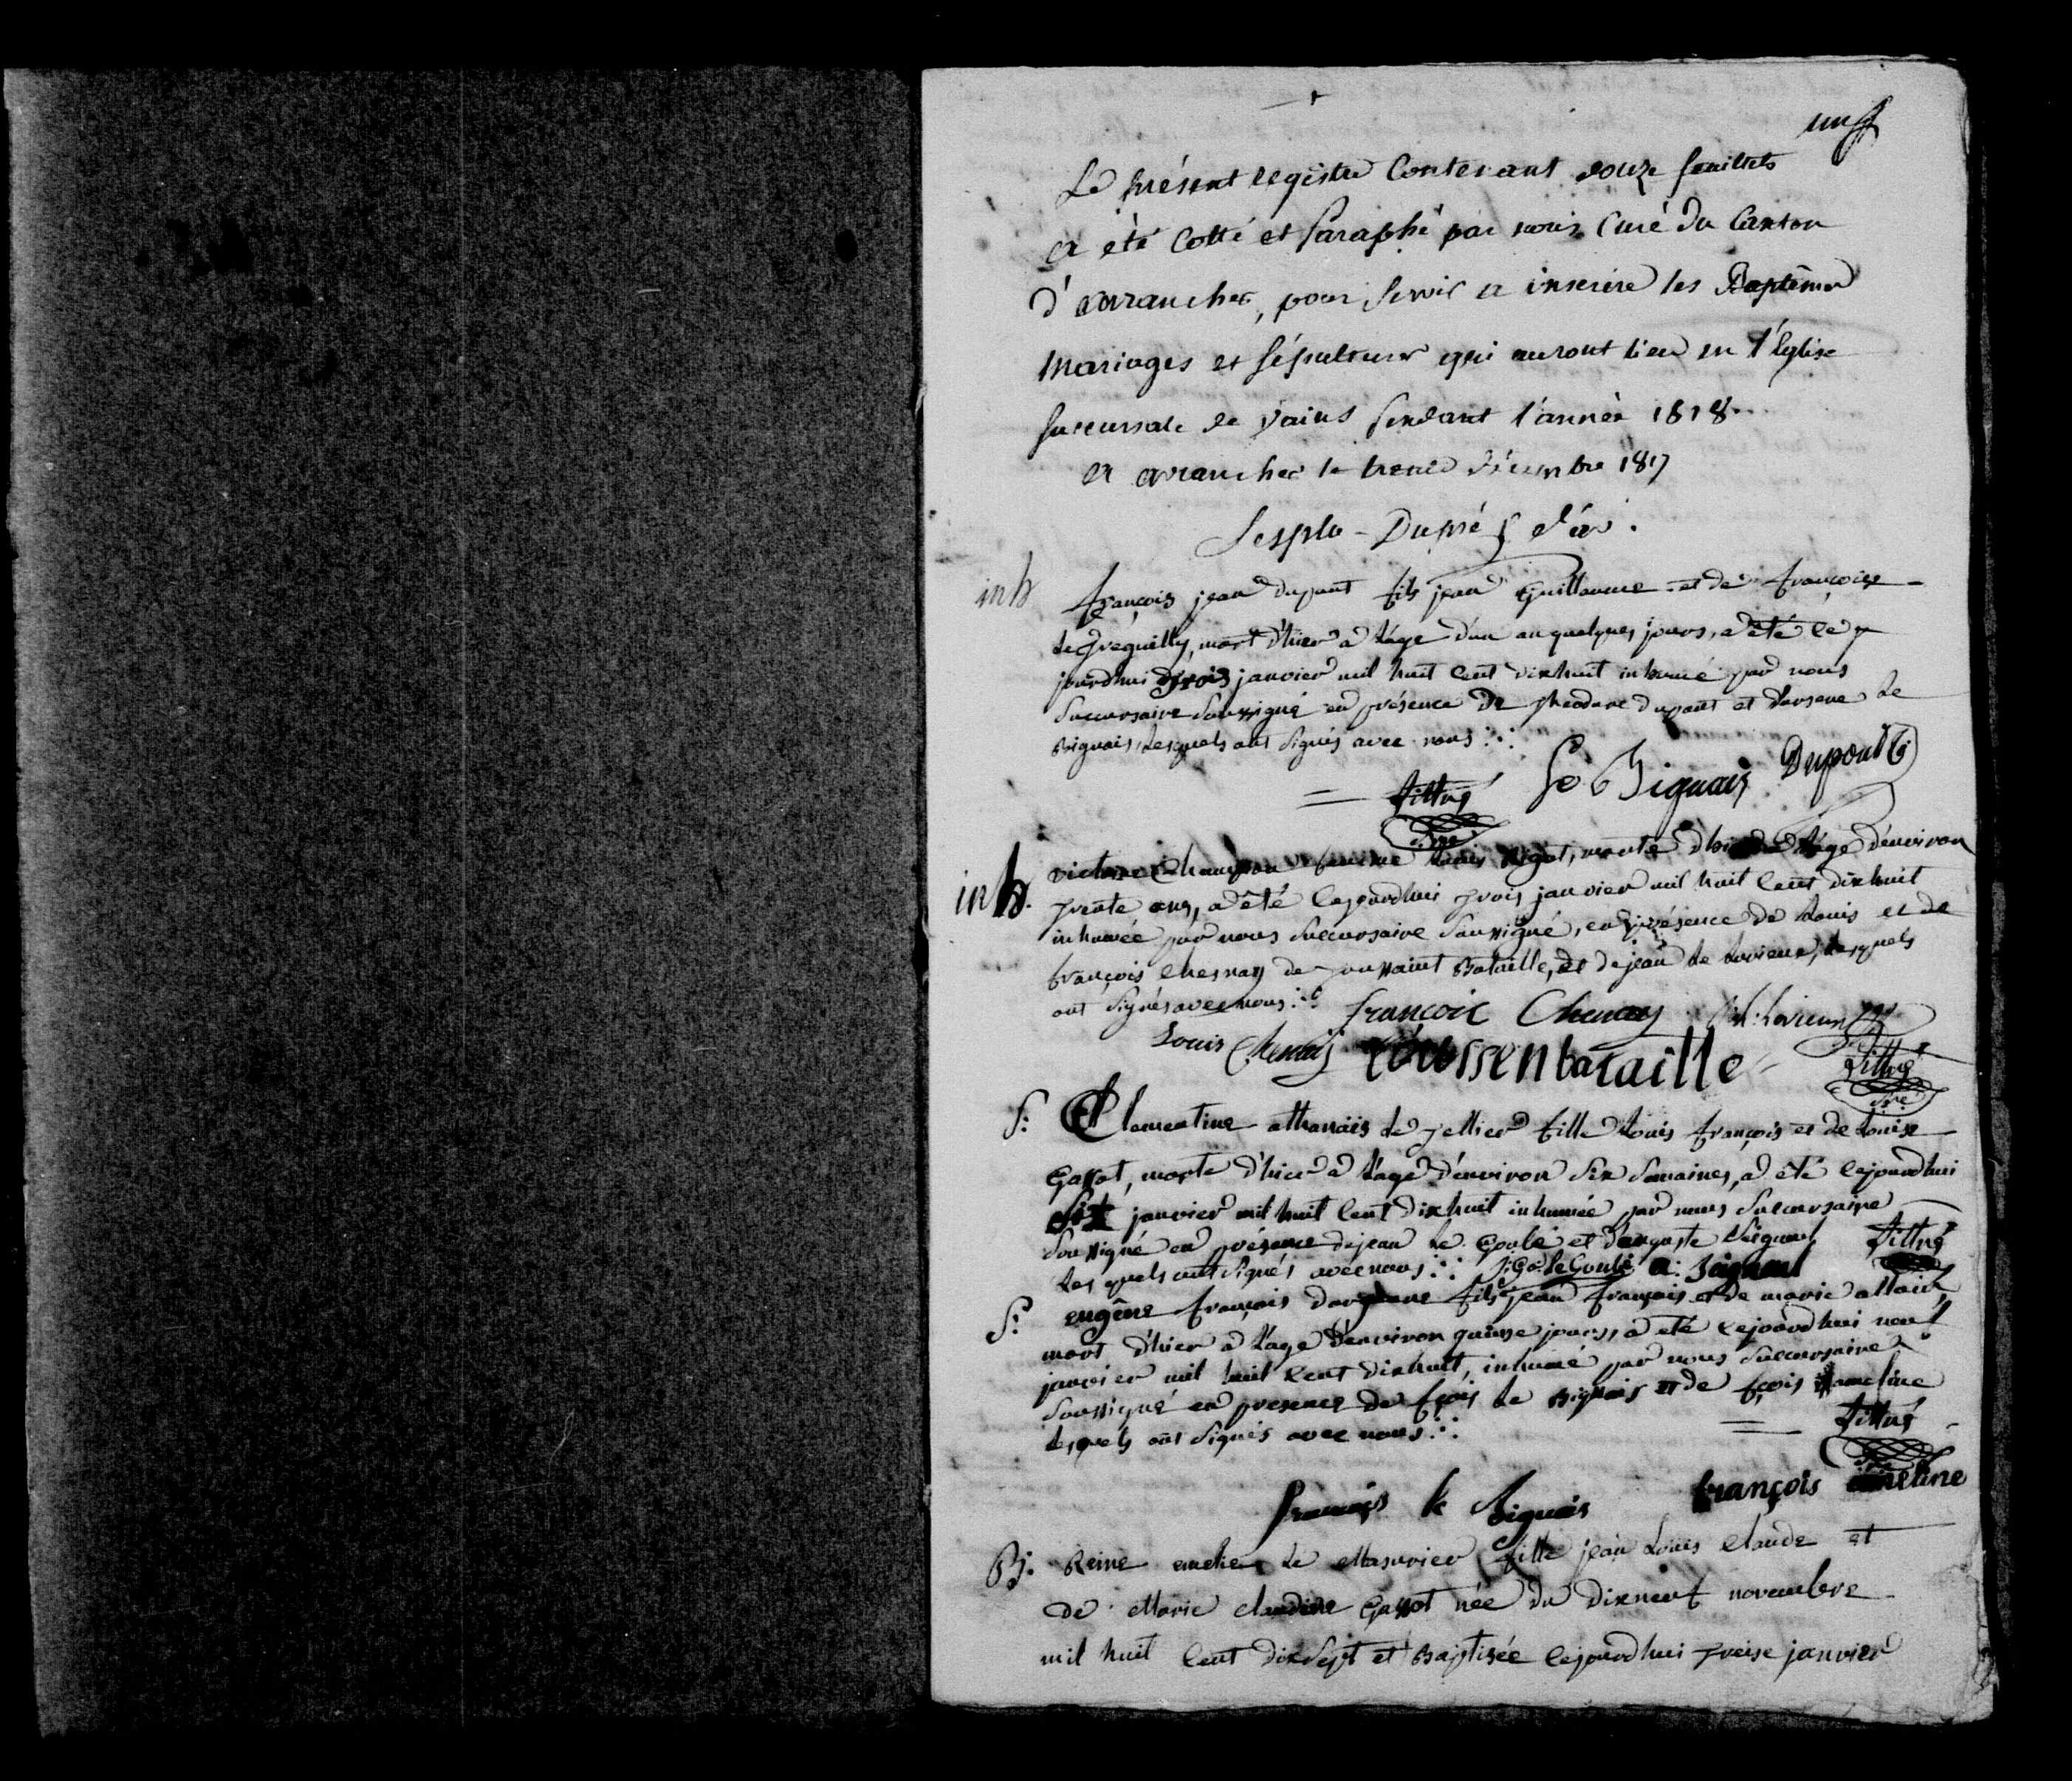 un
Le présent registre Contenant douze feuillets
a été Cotté et Paraphé par nous Curé du Canton
d'avranches, pour servir a inscrire les Baptêmes
Mariages et sépultures qui auront lieu en l'église
succursale de Vains pendant l'année 1818
a avranches le trente décembre 1817
inh françois jean dupont fils jean Guillaume et de françoise
mort d'hier a l'age d'un an quelques jours, a été ce
jourdhui trois janvier mil huit cent dixhuit inhumé par nous
Succursaire Soussigné en présence de dupont et d'arsene Le
Biguais, Lesquels ont signés avec nous
Le Biguais Dupont
Littré
inh. victoire Champion femme Louis morte d'hier a l'age d'environ
trente ans, a été cejourdhui trois janvier mil huit cent dixhuit
inhumée par nous Succursaire Soussigné, en présence de Louis et de
françois Chesnay de toussaint Bataille, et de jean Le Lovieux, Lesquels
ont signés avec nous
françois Chenay
Louis Chenay toussen bataille
Littré
S. Clementine athanaïs Le tellier fille Louis françois et de Louise
Gassot, morte d'hier a l'age d'environ six semaines, a été cejourdhui
six janvier mil huit cent dixhuit inhumée par nous Succursaire
Soussigné en présence de jean Le Goulé et d'auguste
Littré
Les quels ont signés avec nous Le Goulé a.
S. eugène françois fils jean françois et de marie allain,
mort d'hier a l'age d'environ quinse jours, a eté cejourdhui neuf
janvier mil huit cent dixhuit, inhumé par nous Succursaire
Soussigné en présence de fçois Le Biguais et de fçois ameline
Lesquels ont signés avec nous
Littré
françois le Biguais françois ameline
B. Reine emelie Le Masurier fille jean Louis Claude et
de Marie Claudine Gassot née du dixneuf novembre
mil huit cent dixsept et Baptisée cejourdhui treise janvier